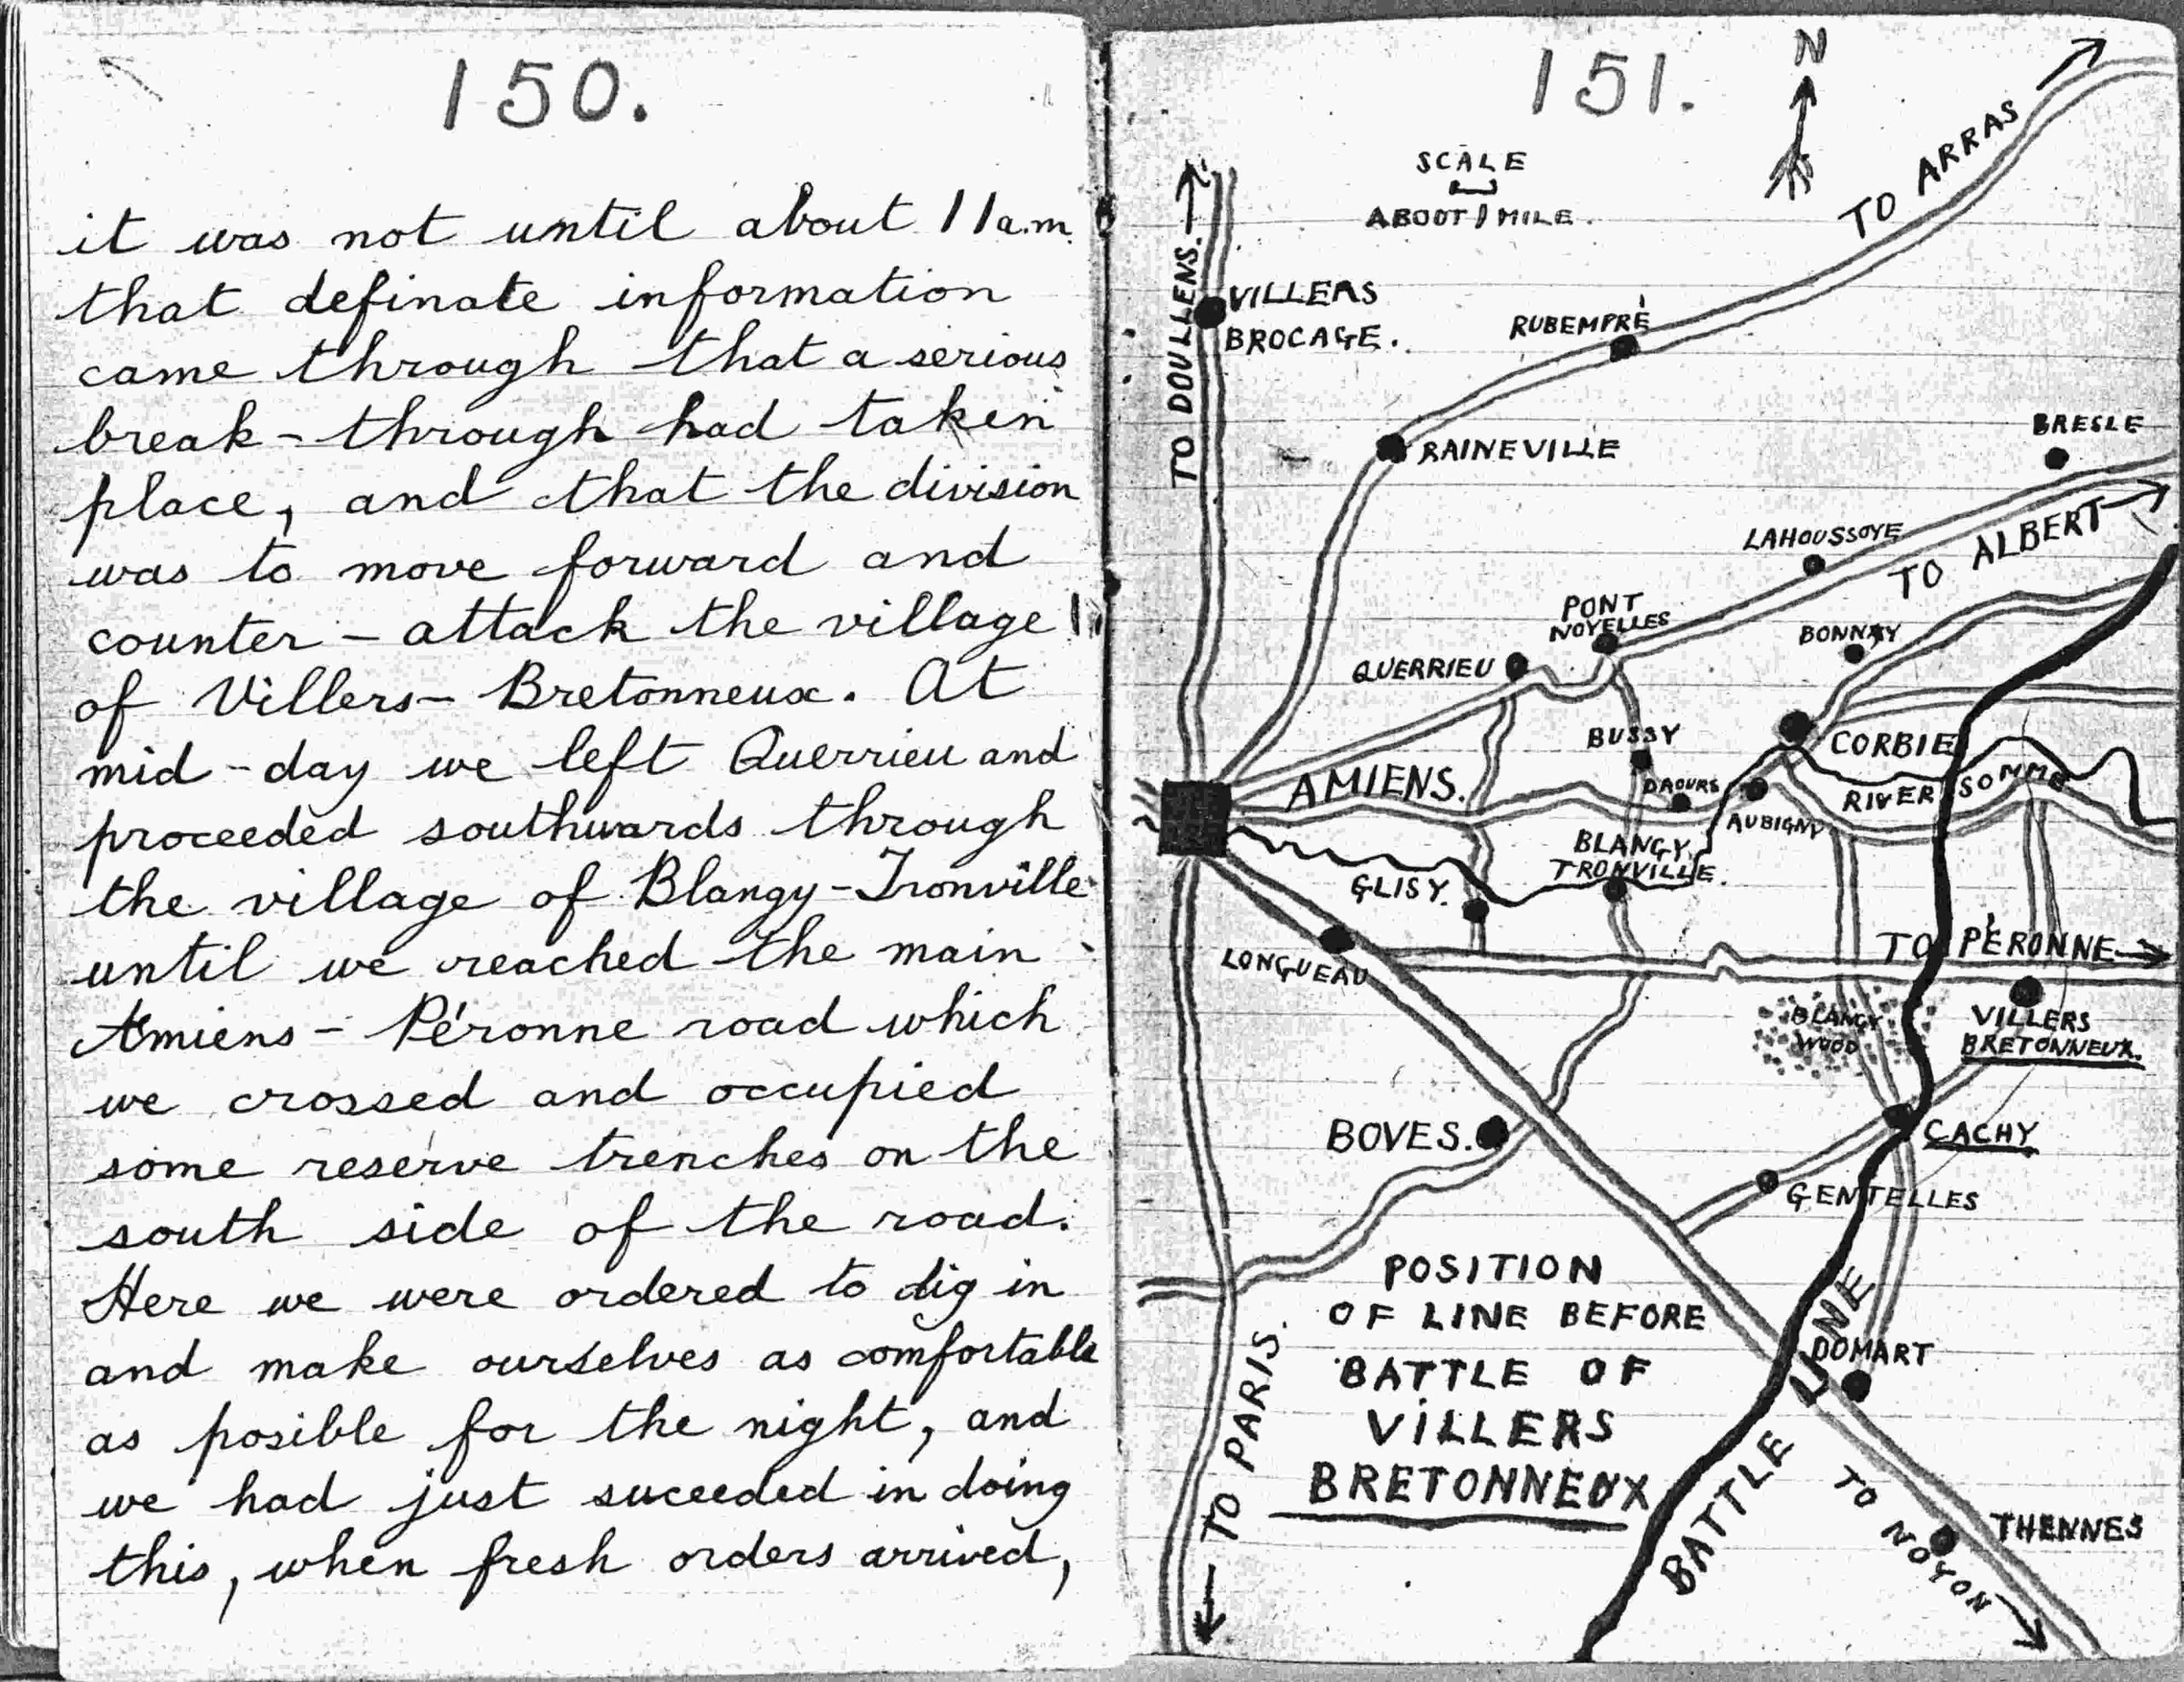 150.
it was not until about 11a.m.
that definate information
came through that a serious
break-through had taken
place, and that the division
was to move forward and
counter-attack the village
of Villers-Bretonneux. At
mid-day we left Querrieu and
proceeded southwards through
the village of Blangy-Tronville
until we reached the main
Amiens-Péronne road which
we crossed and occupied
some reserve trenches on the
south side of the road.
Here we were ordered to dig in
and make ourselves as comfortable
as posible for the night, and
we had just suceeded in doing
this, when fresh orders arrived,
151.
N
SCALE
ABOUT 1 MILE.
TO ARRAS
TO DOULLENS.
VILLERS
BROCAGE.
RUBEMPRÉ
RAINEVILLE
BRESLE
LAHOUSSOYE
TO ALBERT
PONT
NOYELLES
BONNAY
QUERRIEU
BUSSY
CORBIE
AMIENS.
DAOURS
RIVER SOMME
AUBIGNY
BLANGY
TRONVILLE.
GLISY.
LONGUEAU
TO PÉRONNE
BLANGY
WOOD
VILLERS
BRETONNEUX.
BOVES.
CACHY
GENTELLES
POSITION
OF LINE BEFORE
BATTLE OF
VILLERS
BRETONNEUX
DOMART
BATTLE LINE
TO PARIS.
TO NOYON
THENNES